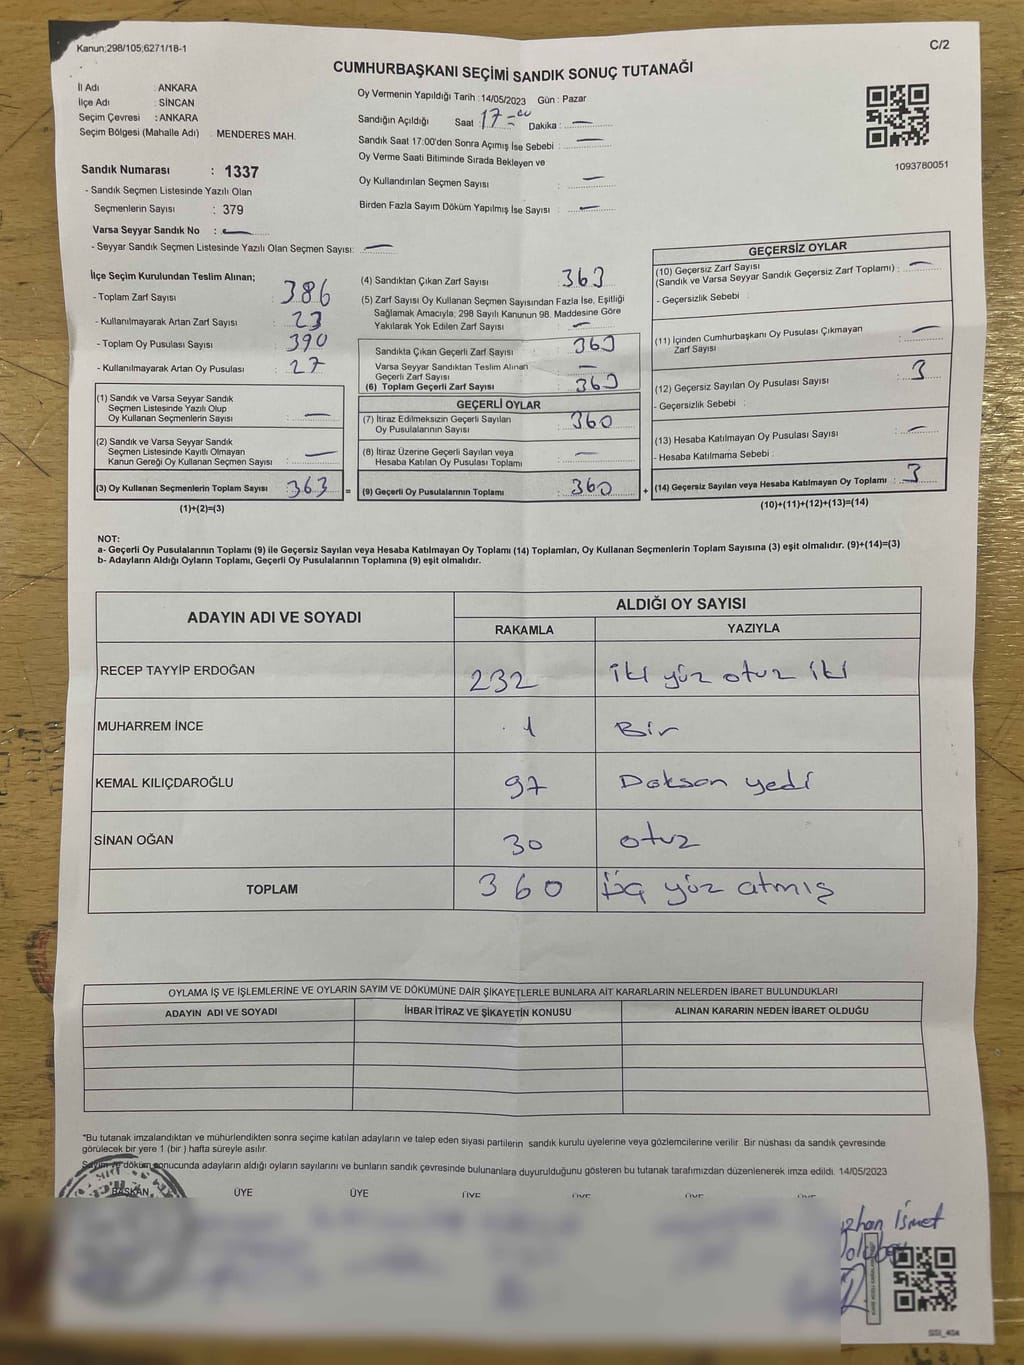 Kanun;298/105;6271/18-1
C/2
CUMHURBAŞKANI SEÇİMİ SANDIK SONUÇ TUTANAĞI
İl Adı : ANKARA
İlçe Adı : SİNCAN
Seçim Çevresi : ANKARA
Seçim Bölgesi (Mahalle Adı) : MENDERES MAH.
Sandık Numarası : 1337
- Sandık Seçmen Listesinde Yazılı Olan
Seçmenlerin Sayısı : 379
Varsa Seyyar Sandık No : —
- Seyyar Sandık Seçmen Listesinde Yazılı Olan Seçmen Sayısı: —
Oy Vermenin Yapıldığı Tarih : 14/05/2023 Gün : Pazar
Sandığın Açıldığı Saat : 17 Dakika : —
Sandık Saat 17:00'den Sonra Açımış İse Sebebi : —
Oy Verme Saati Bitiminde Sırada Bekleyen ve
Oy Kullandırılan Seçmen Sayısı : —
Birden Fazla Sayım Döküm Yapılmış İse Sayısı : —
1093780051
İlçe Seçim Kurulundan Teslim Alınan;
- Toplam Zarf Sayısı : 386
- Kullanılmayarak Artan Zarf Sayısı : 23
- Toplam Oy Pusulası Sayısı : 390
- Kullanılmayarak Artan Oy Pusulası : 27
(1) Sandık ve Varsa Seyyar Sandık
Seçmen Listesinde Yazılı Olup
Oy Kullanan Seçmenlerin Sayısı : —
(2) Sandık ve Varsa Seyyar Sandık
Seçmen Listesinde Kayıtlı Olmayan
Kanun Gereği Oy Kullanan Seçmen Sayısı : —
(3) Oy Kullanan Seçmenlerin Toplam Sayısı : 363 =
(1)+(2)=(3)
(4) Sandıktan Çıkan Zarf Sayısı : 363
(5) Zarf Sayısı Oy Kullanan Seçmen Sayısından Fazla İse, Eşitliği
Sağlamak Amacıyla; 298 Sayılı Kanunun 98. Maddesine Göre
Yakılarak Yok Edilen Zarf Sayısı : —
Sandıkta Çıkan Geçerli Zarf Sayısı : 363
Varsa Seyyar Sandıktan Teslim Alınan
Geçerli Zarf Sayısı : —
(6) Toplam Geçerli Zarf Sayısı : 363
GEÇERLİ OYLAR
(7) İtiraz Edilmeksizin Geçerli Sayılan
Oy Pusulalarının Sayısı : 360
(8) İtiraz Üzerine Geçerli Sayılan veya
Hesaba Katılan Oy Pusulası Toplamı : —
(9) Geçerli Oy Pusulalarının Toplamı : 360 +
GEÇERSİZ OYLAR
(10) Geçersiz Zarf Sayısı
(Sandık ve Varsa Seyyar Sandık Geçersiz Zarf Toplamı) : —
- Geçersizlik Sebebi :
(11) İçinden Cumhurbaşkanı Oy Pusulası Çıkmayan
Zarf Sayısı : —
(12) Geçersiz Sayılan Oy Pusulası Sayısı : 3
- Geçersizlik Sebebi :
(13) Hesaba Katılmayan Oy Pusulası Sayısı : —
- Hesaba Katılmama Sebebi :
(14) Geçersiz Sayılan veya Hesaba Katılmayan Oy Toplamı : 3
(10)+(11)+(12)+(13)=(14)
NOT:
a- Geçerli Oy Pusulalarının Toplamı (9) ile Geçersiz Sayılan veya Hesaba Katılmayan Oy Toplamı (14) Toplamları, Oy Kullanan Seçmenlerin Toplam Sayısına (3) eşit olmalıdır. (9)+(14)=(3)
b- Adayların Aldığı Oyların Toplamı, Geçerli Oy Pusulalarının Toplamına (9) eşit olmalıdır.
ADAYIN ADI VE SOYADI
ALDIĞI OY SAYISI
RAKAMLA YAZIYLA
RECEP TAYYİP ERDOĞAN 232 iki yüz otuz iki
MUHARREM İNCE 1 Bir
KEMAL KILIÇDAROĞLU 97 Doksan yedi
SİNAN OĞAN 30 otuz
TOPLAM 360 üç yüz atmış
OYLAMA İŞ VE İŞLEMLERİNE VE OYLARIN SAYIM VE DÖKÜMÜNE DAİR ŞİKAYETLERLE BUNLARA AİT KARARLARIN NELERDEN İBARET BULUNDUKLARI
ADAYIN ADI VE SOYADI İHBAR İTİRAZ VE ŞİKAYETİN KONUSU ALINAN KARARIN NEDEN İBARET OLDUĞU
*Bu tutanak imzalandıktan ve mühürlendikten sonra seçime katılan adayların ve talep eden siyasi partilerin sandık kurulu üyelerine veya gözlemcilerine verilir. Bir nüshası da sandık çevresinde
görülecek bir yere 1 (bir ) hafta süreyle asılır.
Sayım ve döküm sonucunda adayların aldığı oyların sayılarını ve bunların sandık çevresinde bulunanlara duyurulduğunu gösteren bu tutanak tarafımızdan düzenlenerek imza edildi. 14/05/2023
BAŞKAN ÜYE ÜYE ÜYE ÜYE ÜYE ÜYE
İsmet